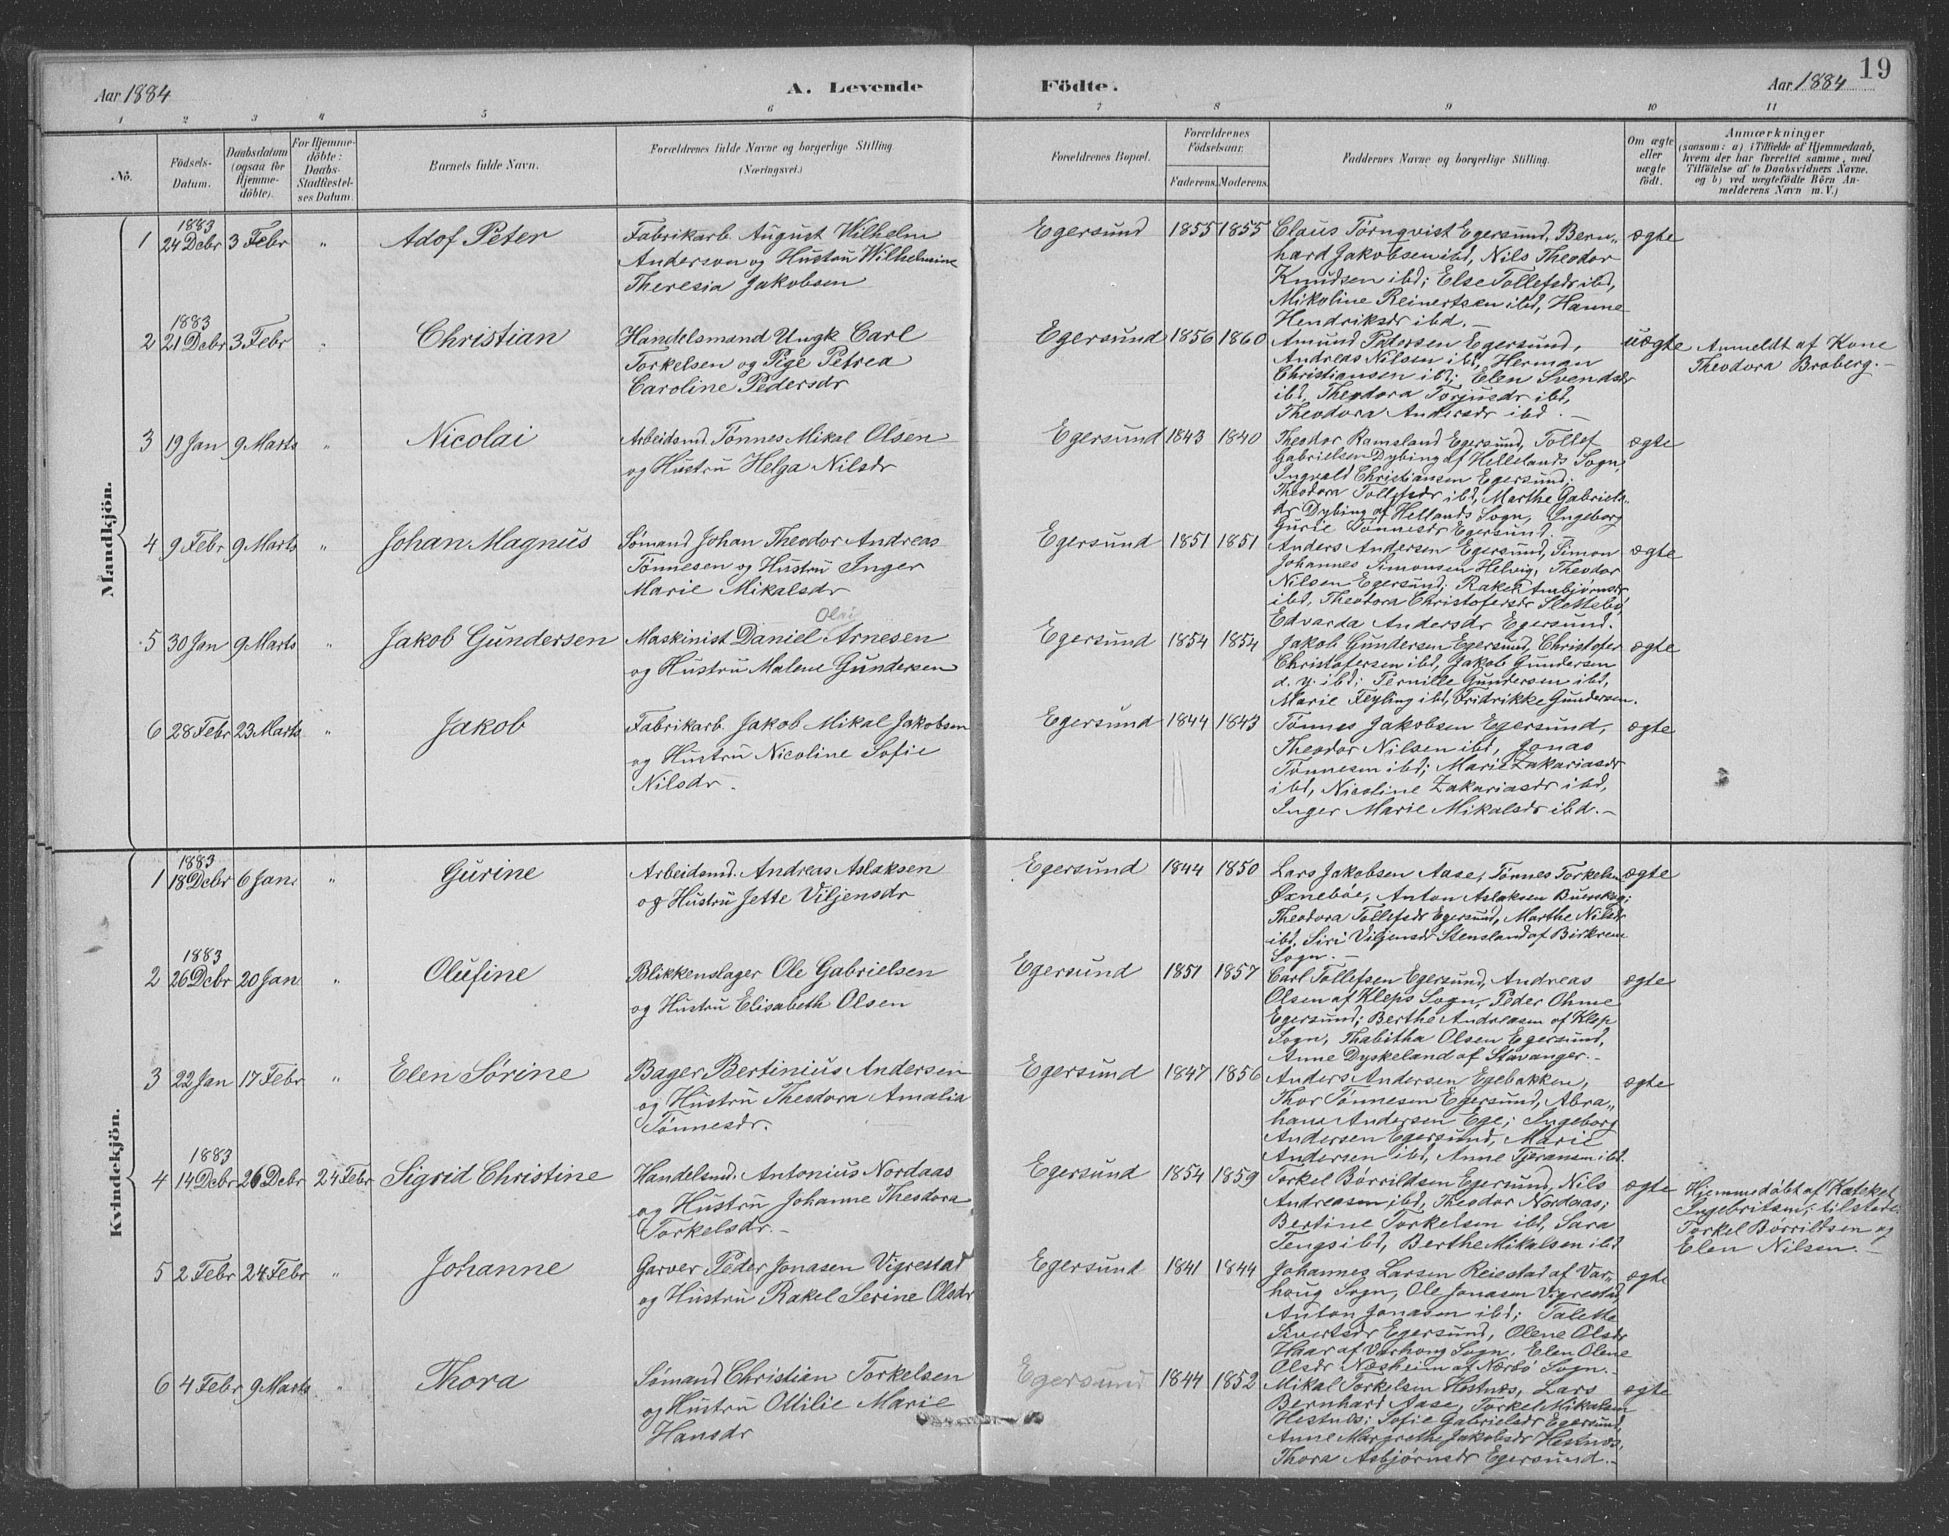 19
Aar 1884
A. Levende
Födte.
Aar 1884
1 2 3 4 5 6 7 8 9 10 11
No.
Födsels-Datum.
Daabsdatum (ogsaa for Hjemme-döbte).
For Hjemme-döbte: Daabs-Stadfæstel-ses Datum.
Barnets fulde Navn.
Forældrenes fulde Navne og borgerlige Stilling. (Næringsvei.)
Forældrenes Bopæl.
Forældrenes Födselsaar.
Faderens. Moderens.
Faddernes Navne og borgerlige Stilling.
Om ægte eller uægte födt.
Anmærkninger
(saasom: a) i Tilfælde af Hjemmedaab,
hvem der har forrettet samme, med
Tilföielse af to Daabsvidners Navne.
og b) ved uægtefödte Börn An-
melderens Navn m. V.)
Mandkjön.
1 1883 24 Decbr 3 Febr " Adof Peter
Fabrikarb. August Wilhelm
Anderson og Hustru Wilhelmine
Theresia Jakobsen
Egersund 1855 1855
Claus Tørnqvist Egersund, Bern-
hard Jakobsen ibd, Nils Theodor
Knudsen ibd; Else Tollefsdr ibd,
Mikaline Reinertsen ibd, Hanne
Hendriksdr ibd.-
ægte
2 1883 21 Decbr 3 Febr " Christian
Handelsmand Ungk Carl
Torkelsen og Pige Petrea
Caroline Pedersdr
Egersund 1856 1860
Amund Pedersen Egersund,
Andreas Nilsen ibd, Herman
Christiansen ibd; Elen Svendsdr
ibd, Theodora Torjusdr ibd,
Theodora Andersdr ibd.-
uægte
Anmeldt af Kone
Theodora Broberg.-
3 19 Jan 9 Marts " Nicolai
Arbeidsmd. Tønnes Mikal Olsen
og Hustru Helga Nilsdr
Egersund 1843 1840
Theodor Ramsland Egersund, Tollef
Gabrielsen Dybing af Hellelands Sogn,
Ingvald Christiansen Egersund;
Theodora Tollefsdr ibd, Marthe Gabriels-
dr Dybing af Hellands Sogn, Ingeborg
Gurie Tønnesdr Egersund.
ægte
4 9 Febr 9 Marts " Johan Magnus
Sømand Johan Theodor Andreas
Tønnesen og Hustru Inger
Marie Mikalsdr
Egersund 1851 1851
Anders Andersen Egersund, Simon
Johannes Simonsen Helvig, Theodor
Nilsen Egersund; Rakel Asbjørnsdr
ibd, Theodora Christofersdr Slettebø
Edvarda Andersdr Egersund.
ægte
5 30 Jan 9 Marts " Jakob Gundersen
Olai
Maskinist Daniel Arnesen
og Hustru Malene Gundersen
Egersund 1854 1854
Jakob Gundersen Egersund, Christofer
Christofersen ibd, Jakob Gundersen
d. y. ibd; Pernille Gundersen ibd,
Marie Feyling ibd, Fridrikke Gundersen.
ægte
6 28 Febr 23 Marts " Jakob
Fabrikarb. Jakob Mikal Jakobsen
og Hustru Nicoline Sofie
Nilsdr.
Egersund 1844 1843
Tønnes Jakobsen Egersund,
Theodor Nilsen ibd, Jonas
Tønnesen ibd; Marie Zakariasdr
ibd, Nicoline Zakariasdr ibd,
Inger Marie Mikalsdr ibd.-
ægte
Kvindekjön.
1 1883 18 Decbr 6 Jan " Gurine
Arbeidsmd. Andreas Aslaksen
og Hustru Jette Viljensdr
Egersund 1844 1850
Lars Jakobsen Aase, Tønnes Torkelsen
Øxnebøe, Anton Aslaksen Buerskog;
Theodora Tollefsdr Egersund, Marthe Nilsdr
ibd, Siri Viljensdr Stensland af Birkrem
Sogn.-
ægte
2 1883 26 Decbr 20 Jan " Olufine
Blikkenslager Ole Gabrielsen
og Hustru Elisabeth Olsen
Egersund 1851 1857
Carl Tollefsen Egersund, Andreas
Olsen af Kleps Sogn, Peder Ohme
Egersund; Berthe Andreasen af Klep
Sogn, Thabitha Olsen Egersund,
Anne Dyskeland af Stavanger.-
ægte
3 22 Jan 17 Febr " Elen Sørine
Bager Bertinius Andersen
og Hustru Theodora Amalia
Tønnesdr.
Egersund 1847 1856
Anders Andersen Egebakken,
Thor Tønnesen Egersund, Abra-
ham Andersen Ege; Ingeborg
Andersen Egersund, Marie
Andersen ibd, Anne Tjeransen ibd.
ægte
4 1883 14 Decbr 26 Decbr 24 Febr Sigrid Christine
Handelsmd. Antonius Nordaas
og Hustru Johanne Theodora
Torkelsdr.-
Egersund 1854 1859
Torkel Børrildsen Egersund, Nils
Andreasen ibd, Theodor Nordaas;
Bertine Torkelsen ibd, Sara
Tengs ibd, Berthe Mikalsen ibd
ægte
Hjemmedøbt af Kateket
Ingebritsen; tilstede
Torkel Børrildsen og
Elen Nilsen.-
5 2 Febr 24 Febr " Johanne
Garver Peder Jonasen Vigrestad
og Hustru Rakel Serine Olsdr
Egersund 1841 1844
Johannes Larsen Reiestad af Var-
houg Sogn, Ole Jonasen Vigrestad,
Anton Jonasen ibd; Talette
Sivertsdr Egersund, Olene Olsdr
Haar af Varhoug Sogn, Elen Olene
Olsdr Næsheim af Nærbø Sogn.-
ægte
6 4 Febr 9 Marts " Thora
Sømand Christian Torkelsen
og Hustru Ottilie Marie
Hansdr
Egersund 1844 1852
Mikal Torkelsen Hestnes, Lars
Bernhard Aase, Torkel Mikalsen
Hestnes; Sofie Gabrielsdr Egersund,
Anne Margrethe Jakobsdr Hestnes,
Thora Asbjørnsdr Egersund.-
ægte